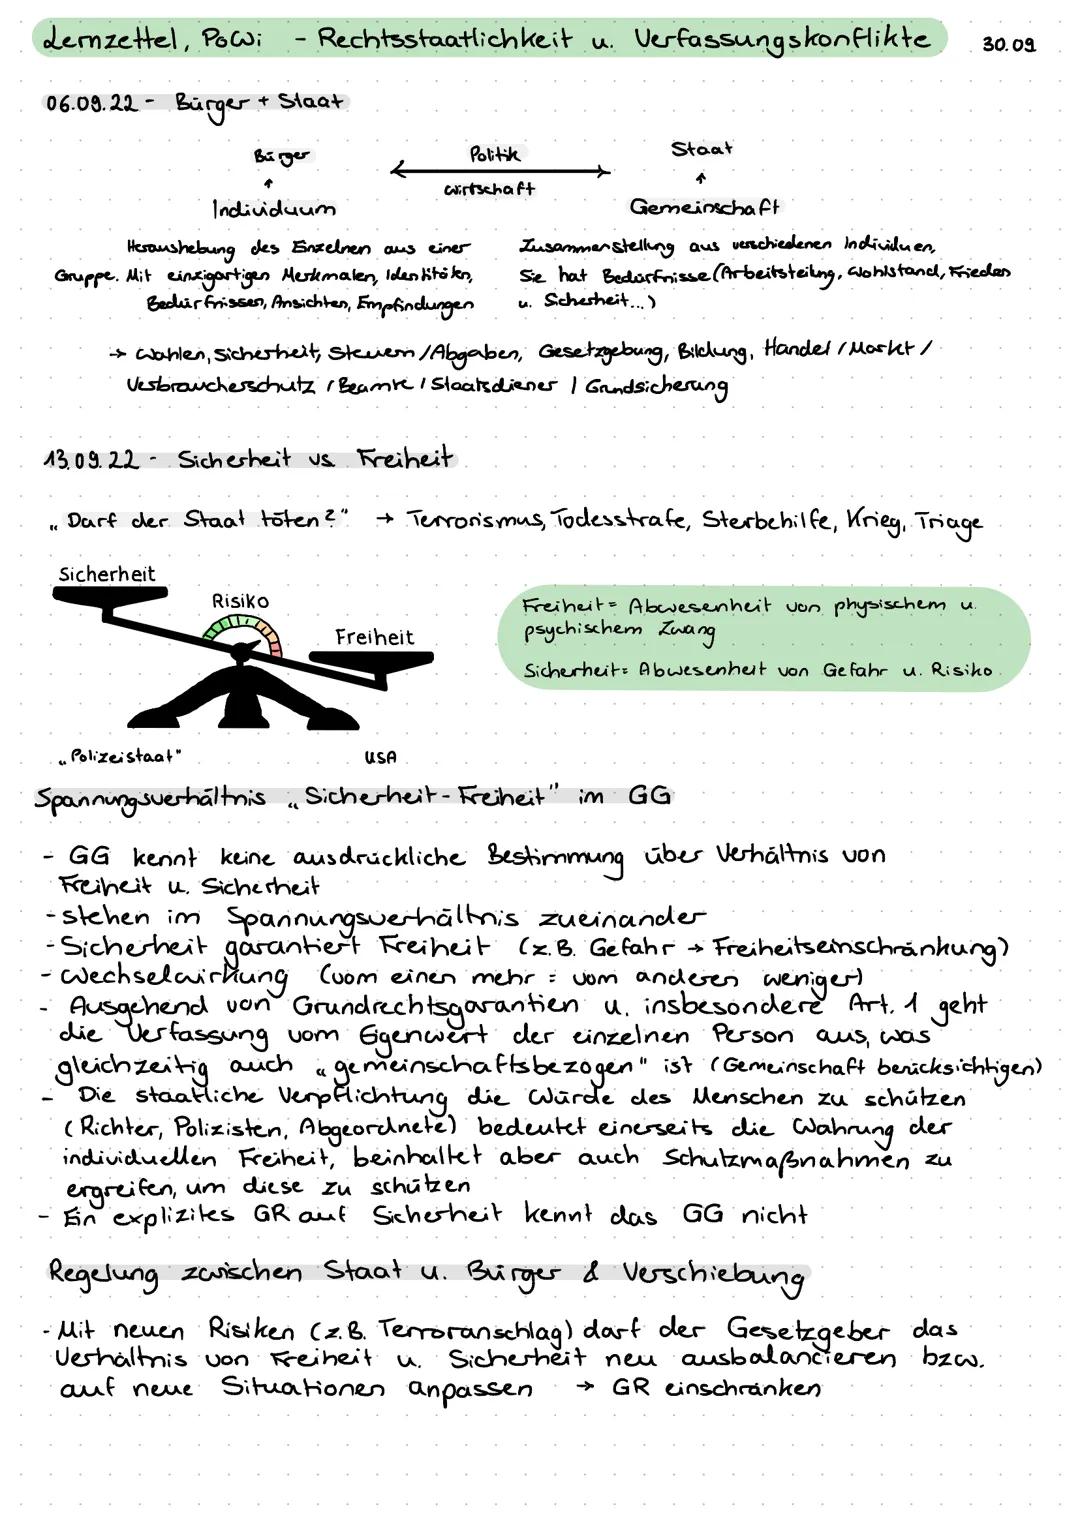 Lernzettel, PoWi - Rechtsstaatlichkeit u. Verfassungskonflikte 30.09
06.09.22 - Bürger + Staat
Bürger Politik Staat
↑ Wirtschaft ↑
Individuum Gemeinschaft
Heraushebung des Einzelnen aus einer
Gruppe. Mit einzigartigen Merkmalen, Identitäten,
Bedürfnissen, Ansichten, Empfindungen
Zusammenstellung aus verschiedenen Individuen,
Sie hat Bedürfnisse (Arbeitsteilung, Wohlstand, Frieden
u. Sicherheit...)
→ Wahlen, Sicherheit, Steuern/Abgaben, Gesetzgebung, Bildung, Handel / Markt /
Verbraucherschutz / Beamte / Staatsdiener / Grundsicherung
13.09.22 - Sicherheit vs Freiheit
„Darf der Staat töten?" → Terrorismus, Todesstrafe, Sterbehilfe, Krieg, Triage
Sicherheit
Risiko
Freiheit
Freiheit = Abwesenheit von physischem u.
psychischem Zwang
Sicherheit = Abwesenheit von Gefahr u. Risiko
„Polizeistaat" USA
Spannungsverhältnis „Sicherheit - Freiheit" im GG
- GG kennt keine ausdrückliche Bestimmung über Verhältnis von
Freiheit u. Sicherheit
- stehen im Spannungsverhältnis zueinander
- Sicherheit garantiert Freiheit (z.B. Gefahr → Freiheitseinschränkung)
- Wechselwirkung (vom einen mehr = vom anderen weniger)
- Ausgehend von Grundrechtsgarantien u. insbesondere Art. 1 geht
die Verfassung vom Eigenwert der einzelnen Person aus, was
gleichzeitig auch „gemeinschaftsbezogen" ist (Gemeinschaft berücksichtigen)
- Die staatliche Verpflichtung die Würde des Menschen zu schützen
(Richter, Polizisten, Abgeordnete) bedeutet einerseits die Wahrung der
individuellen Freiheit, beinhaltet aber auch Schutzmaßnahmen zu
ergreifen, um diese zu schützen
- Ein explizites GR auf Sicherheit kennt das GG nicht
Regelung zwischen Staat u. Bürger & Verschiebung
- Mit neuen Risiken (z.B. Terroranschlag) darf der Gesetzgeber das
Verhältnis von Freiheit u. Sicherheit neu ausbalancieren bzw.
auf neue Situationen anpassen → GR einschränken